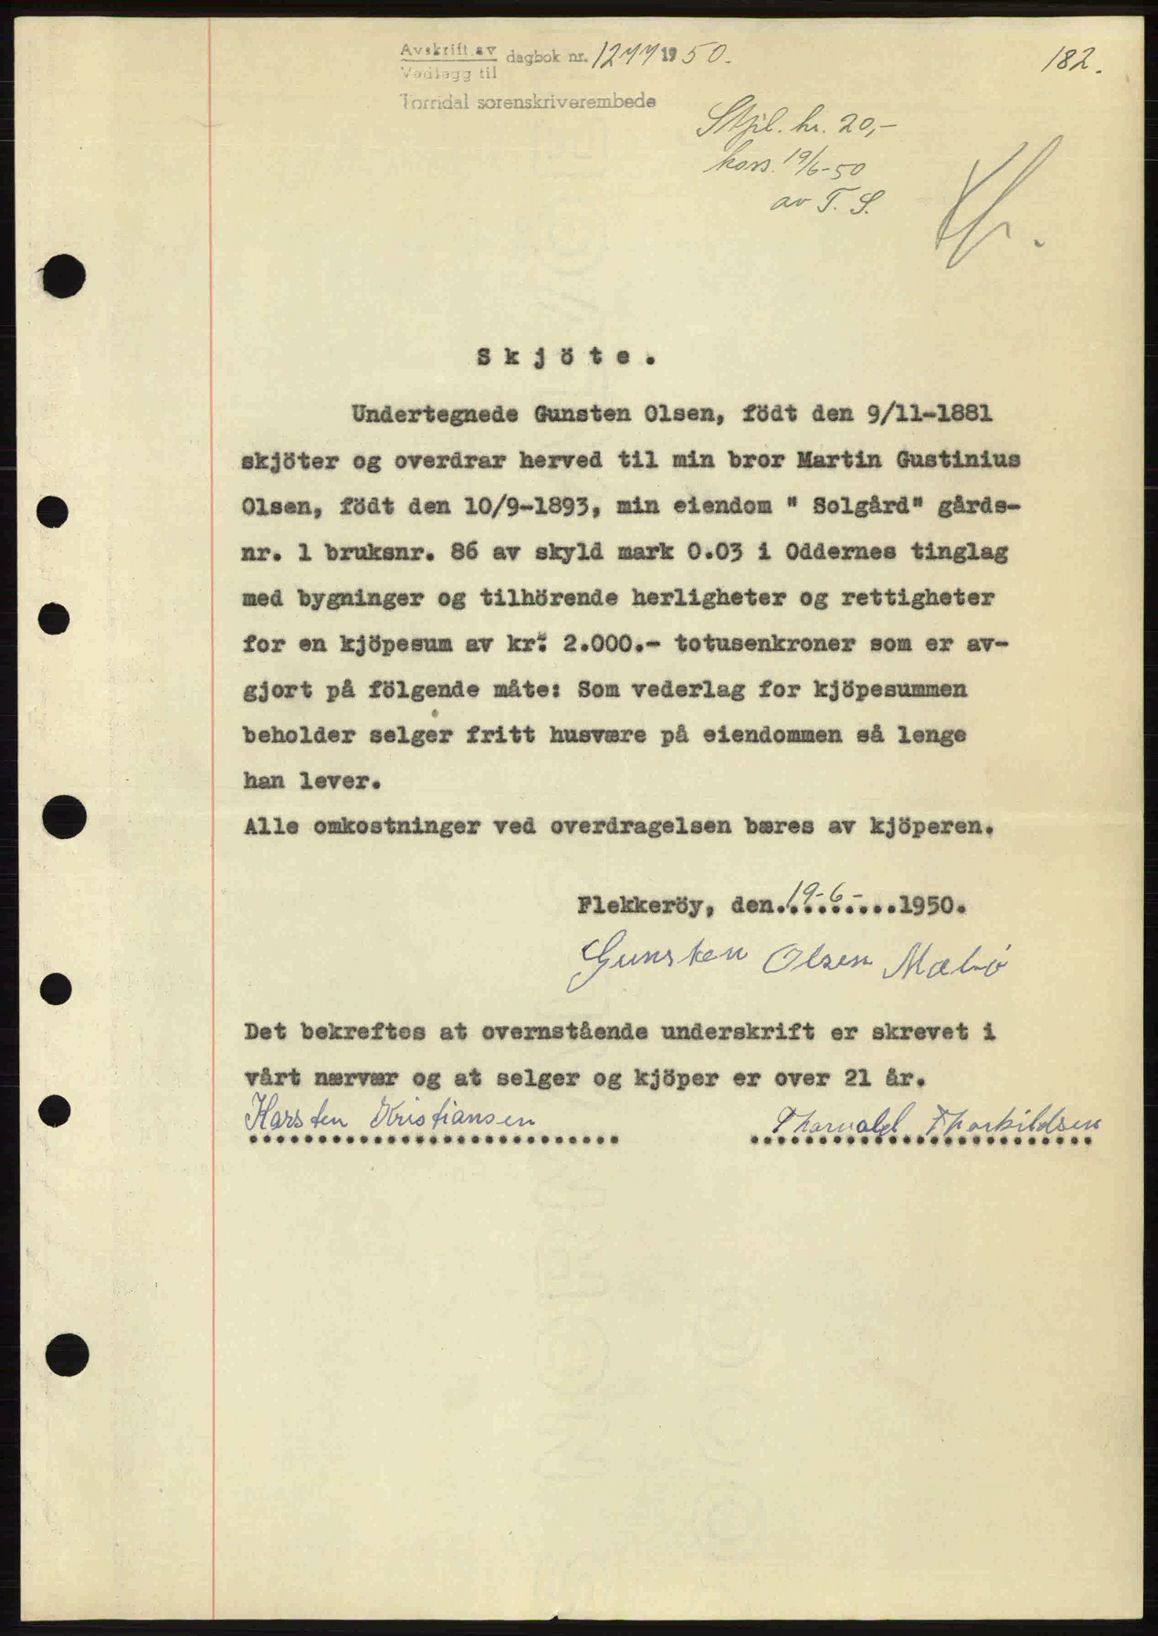 Avskrift av
Vedlegg til
dagbok nr. 1277 1950.
182.
Torridal sorenskriverembede
Stpl. kr. 20,-
kass. 19/6-50
av T. S.
S k j ö t e .
Undertegnede Gunsten Olsen, födt den 9/11-1881
skjöter og overdrar herved til min bror Martin Gustinius
Olsen, födt den 10/9-1893, min eiendom " Solgård" gårds-
nr. 1 bruksnr. 86 av skyld mark 0.03 i Oddernes tinglag
med bygninger og tilhörende herligheter og rettigheter
for en kjöpesum av kr: 2.000.- totusenkroner som er av-
gjort på fölgende måte: Som vederlag for kjöpesummen
beholder selger fritt husvære på eiendommen så lenge
han lever.
Alle omkostninger ved overdragelsen bæres av kjöperen.
Flekkeröy, den. 19-6- ....1950.
Gunsten Olsen Mæbø
Det bekreftes at overnstående underskrift er skrevet i
vårt nærvær og at selger og kjöper er over 21 år.
Karsten Kristiansen
Thorvald Thorkildsen